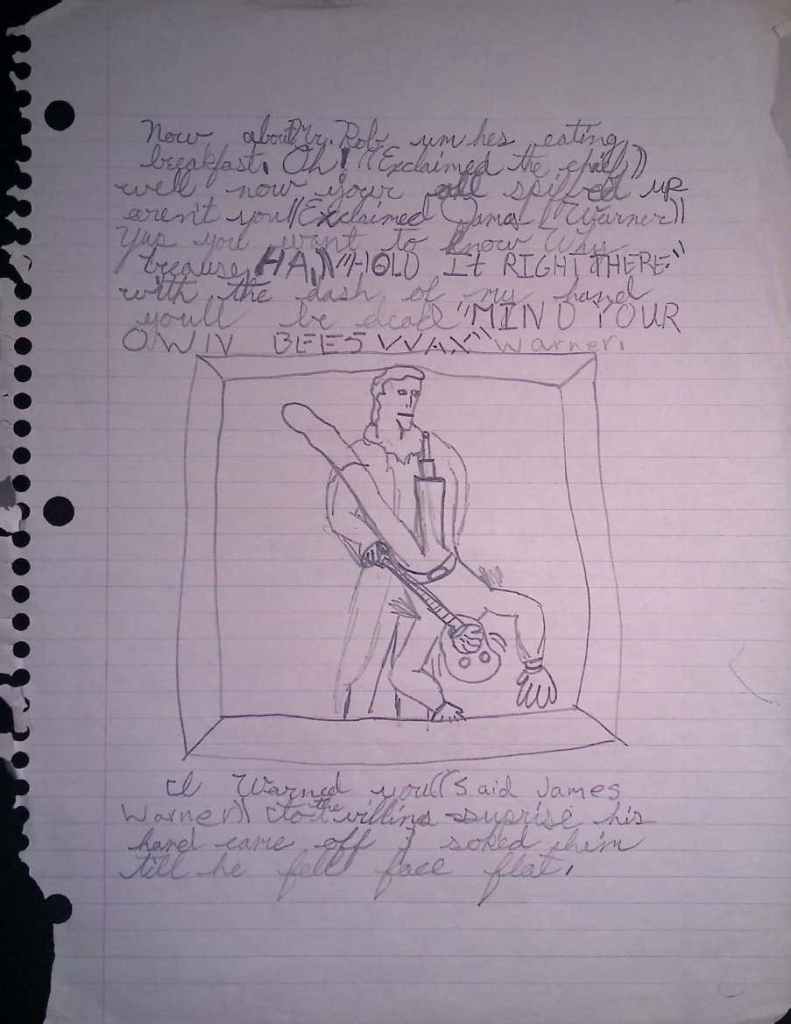 Now about Mr. Rob um hes eating
breakfast. Oh! ((Exclaimed the
well now your all spiffed up
aren't you((Exclaimed James Warner))
Yup you want to know Why
because, HA,)) "HOLD It RIGHT THERE"
with the dash of my hand
youll be dead "MIND YOUR
OWN BEESWAX" Warner.
I Warned you((Said James
Warner)) to the villins suprise his
hand came off I soked him
till he fell face flat.